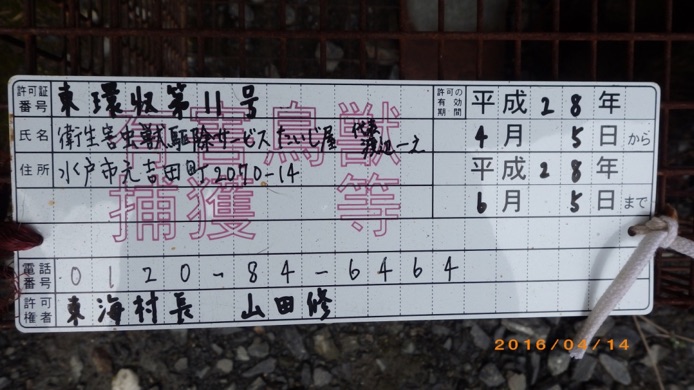 許可証番号 東環収第11号
許可の有効期間 平成28年4月5日から
平成28年6月5日まで
氏名 衛生害虫獣駆除サービスたいじ屋 代表 渡辺一之
住所 水戸市元吉田町2070-14
有害鳥獣
捕獲 等
電話番号 0120-84-6464
許可権者 東海村長 山田修
2016/04/14